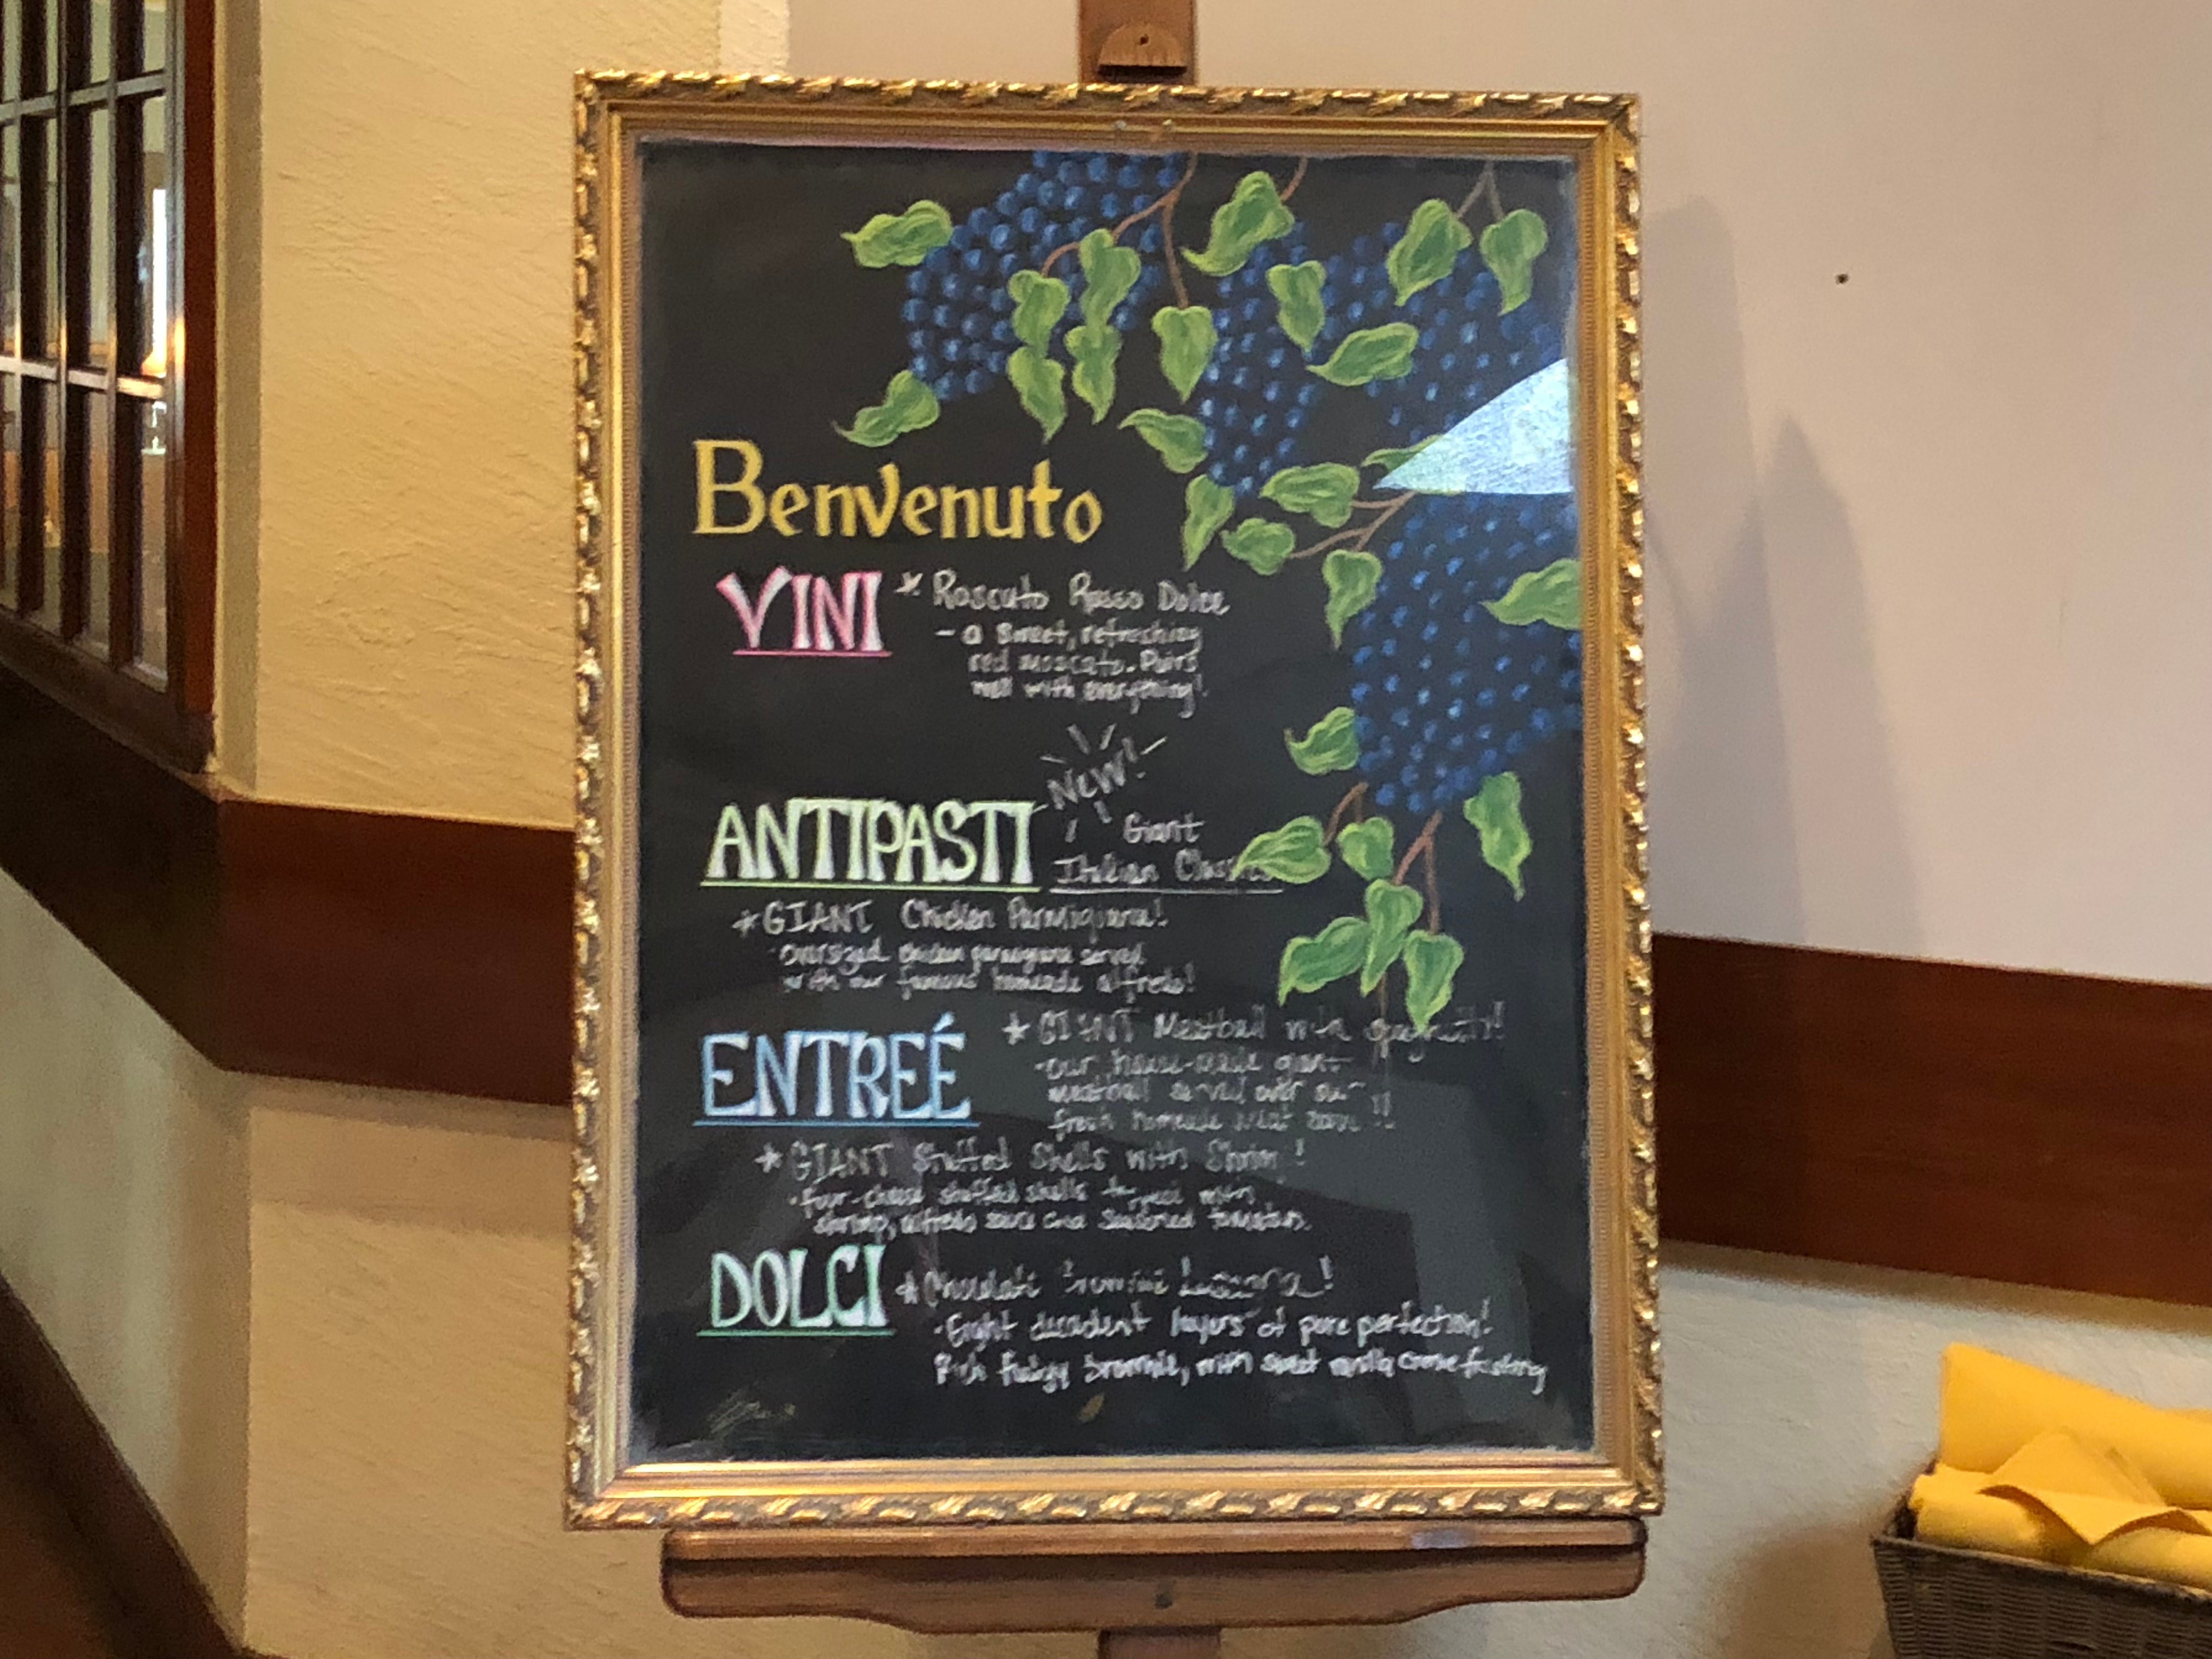 Benvenuto
VINI
* Roscato Rosso Dolce
- a sweet, refreshing
red moscato. Pairs
well with everything!
New!
ANTIPASTI
Giant
Italian Classics
* GIANT Chicken Parmigiana!
- oversized chicken parmigiana served
with our famous homeade alfredo!
ENTREÉ
* GIANT Meatball with spaghetti!
- our house-made giant
meatball served over our
fresh homeade meat !!
* GIANT Stuffed Shells with Shrimp!
- four-cheese stuffed shells topped with
shrimp, alfredo sauce and seasoned tomatoes.
DOLCI
* Chocolate Brownie Lasagna!
- Eight decadent layers of pure perfection!
Rich fudgy brownie, with sweet vanilla creme frosting